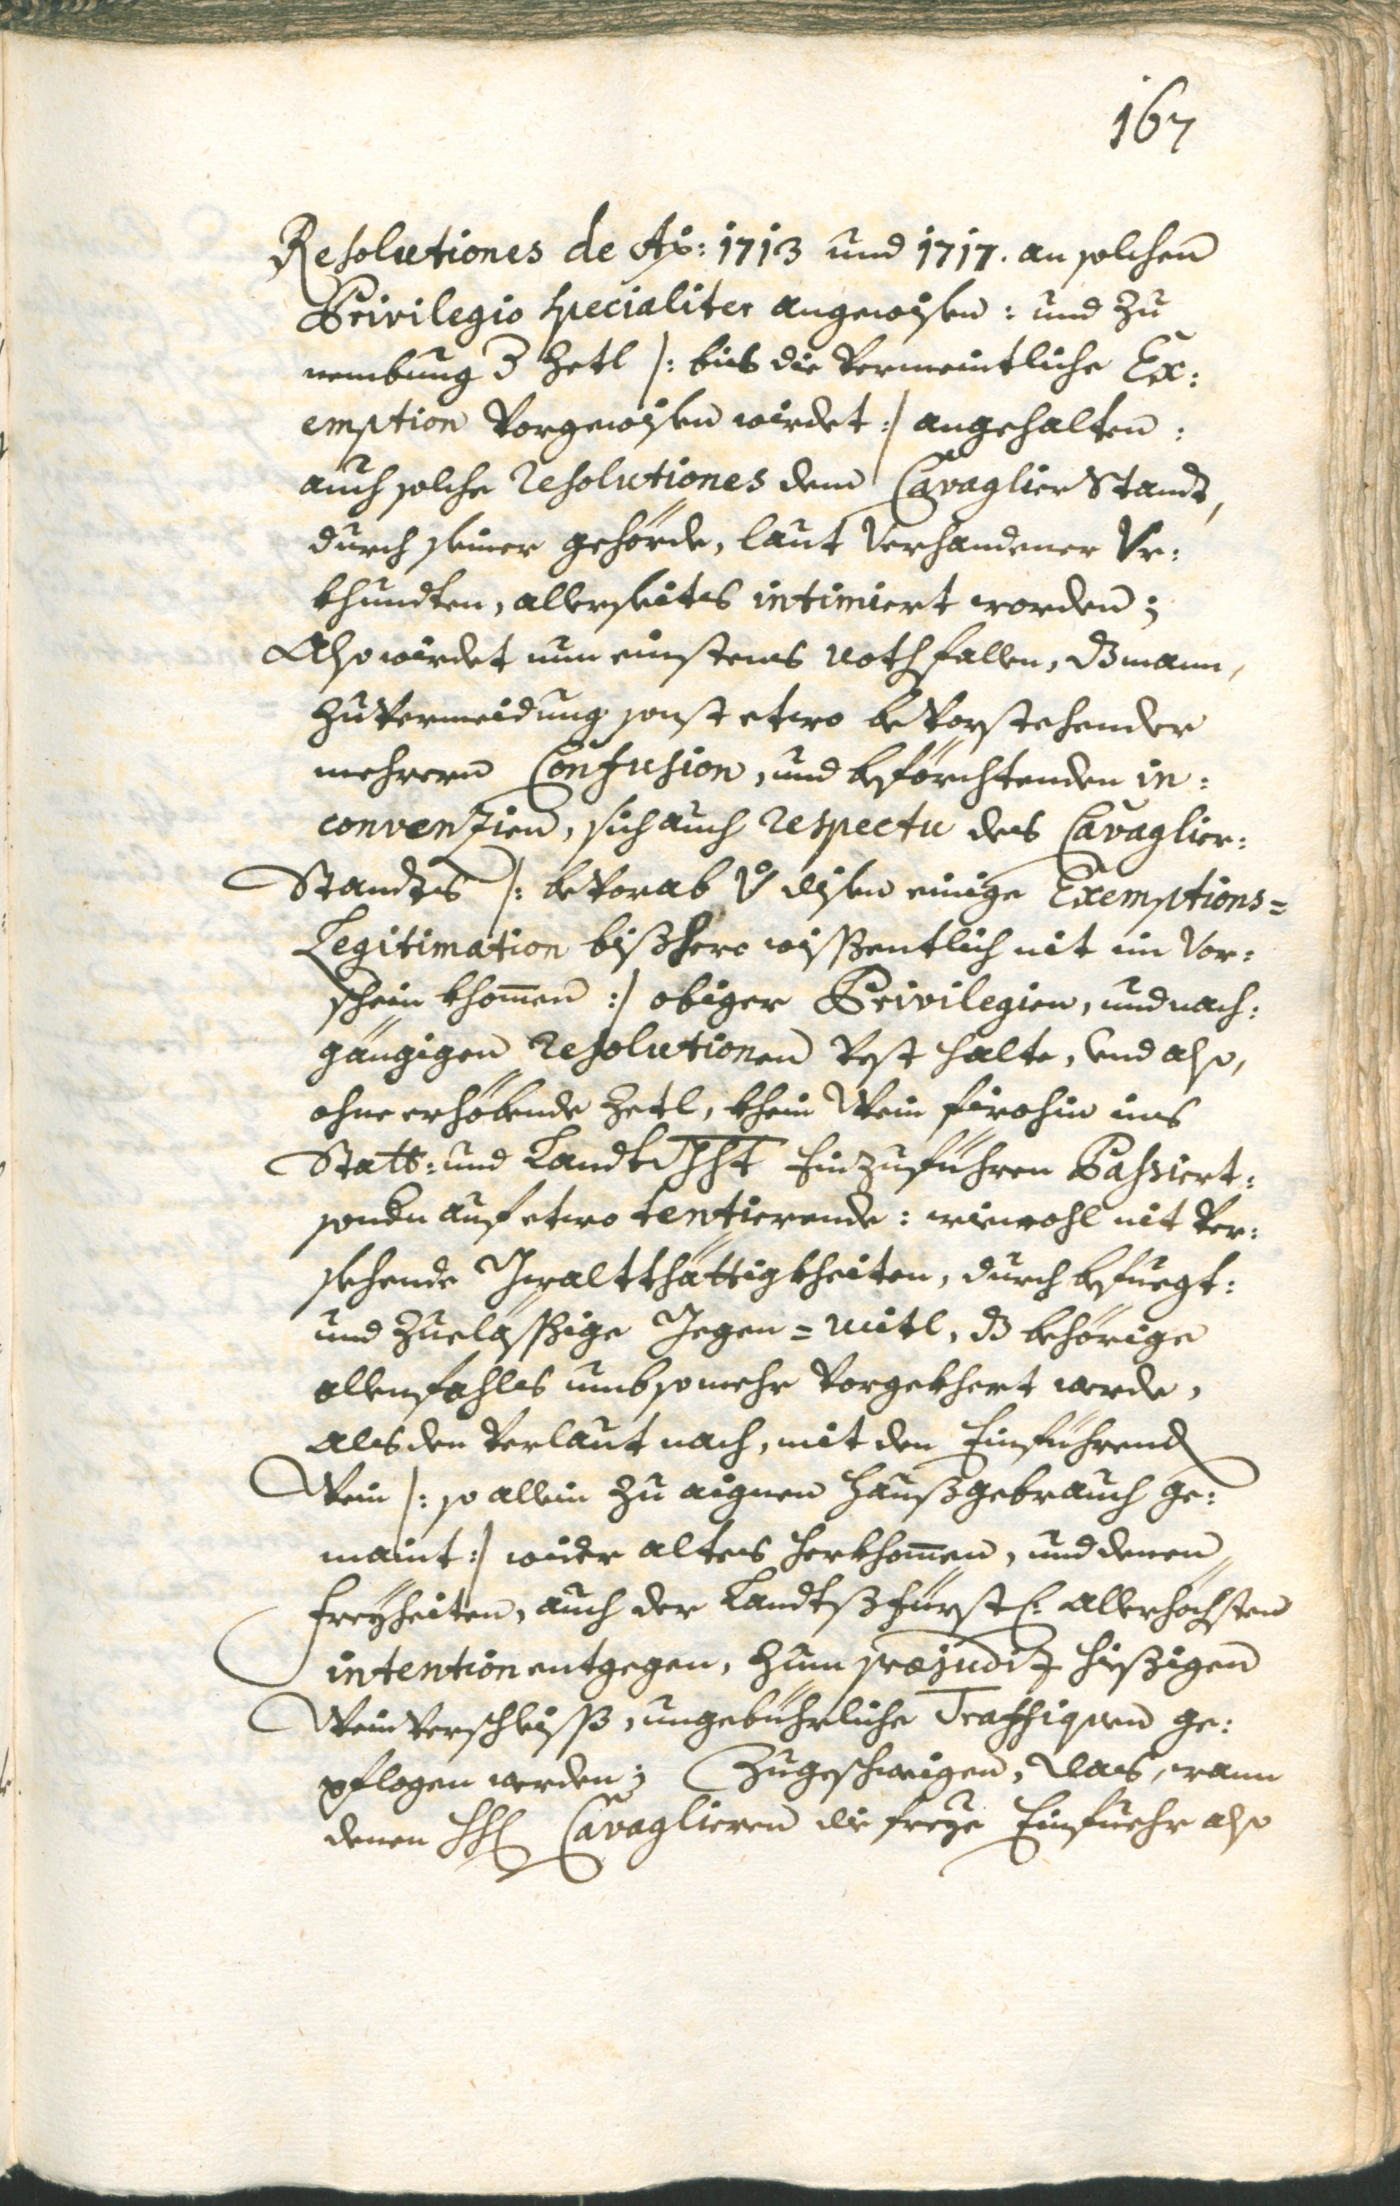 167
Resolutiones de Ao: 1713 und 1717. an solchen
Privilegio specialiter angewisen: und zu
nembung d Zetl /: bis die vermeintliche Ex:
emption vorgewisen wirdet :/ angehalten:
auch solche Resolutiones dem Cavaglier Standt,
durch seiner gehörde, laut verhandener Vr:
khundten, allerseits intimiert worden;
Also wirdet nun einstens noth fallen, dz mann,
zu vermeidung sonst etwo bevorstehender
mehrern Confusion, und beförchtenden in:
convenzien, sich auch respectu des Cavaglier:
Standts /: bevorab v disen einige Exemptions=
Legitimation bißhero wißentlich nit in vor:
schein khomen :/ obiger Privilegien, und nach:
gängigen Resolutionen vest halte, und also,
ohne erhöbende Zetl, khein Wein firohin ins
Statt: und Landt einzuführen Passiert:
sondn auf etwo tentierende: wiewohl nit ver:
sehende Gwaltthättigkheiten, durch befuegt:
und zuelässige Gegen=mitl, dz behörige
allenfahls umb so mehr vorgekhert werde,
als dem verlaut nach, mit den Einführend
Wein /: so allein zu aignen Haußgebrauch ge:
maint :/ wider altes herkhomen, und denen
freyheiten, auch der Landtsfürstl: allerhöchsten
intention entgegen, zum præjudiz hießigen
Weinverschleiß, ungebührliche Traffiquen ge:
pflogen werden; Zugeschweigen, das, wann
denen Cavaglieren die freye Einfuehr also